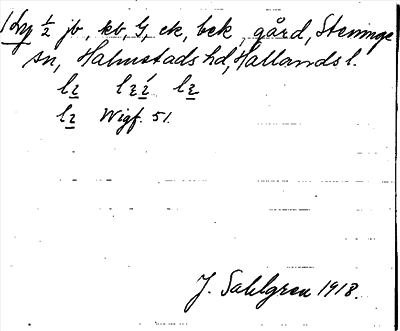 1 Ly ½ jb, kb, G, ek, bek, gård, Steninge
sn, Halmstads hd, Hallands l.
Wigf. 51.
J. Sahlgren 1918.